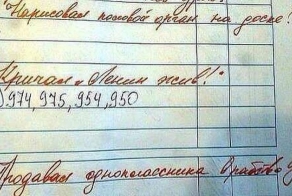 "Нарисовал половой орган на доске!"
Кричал „Ленин жив!"
974, 975, 954, 950
Продавал одноклассника в рабство